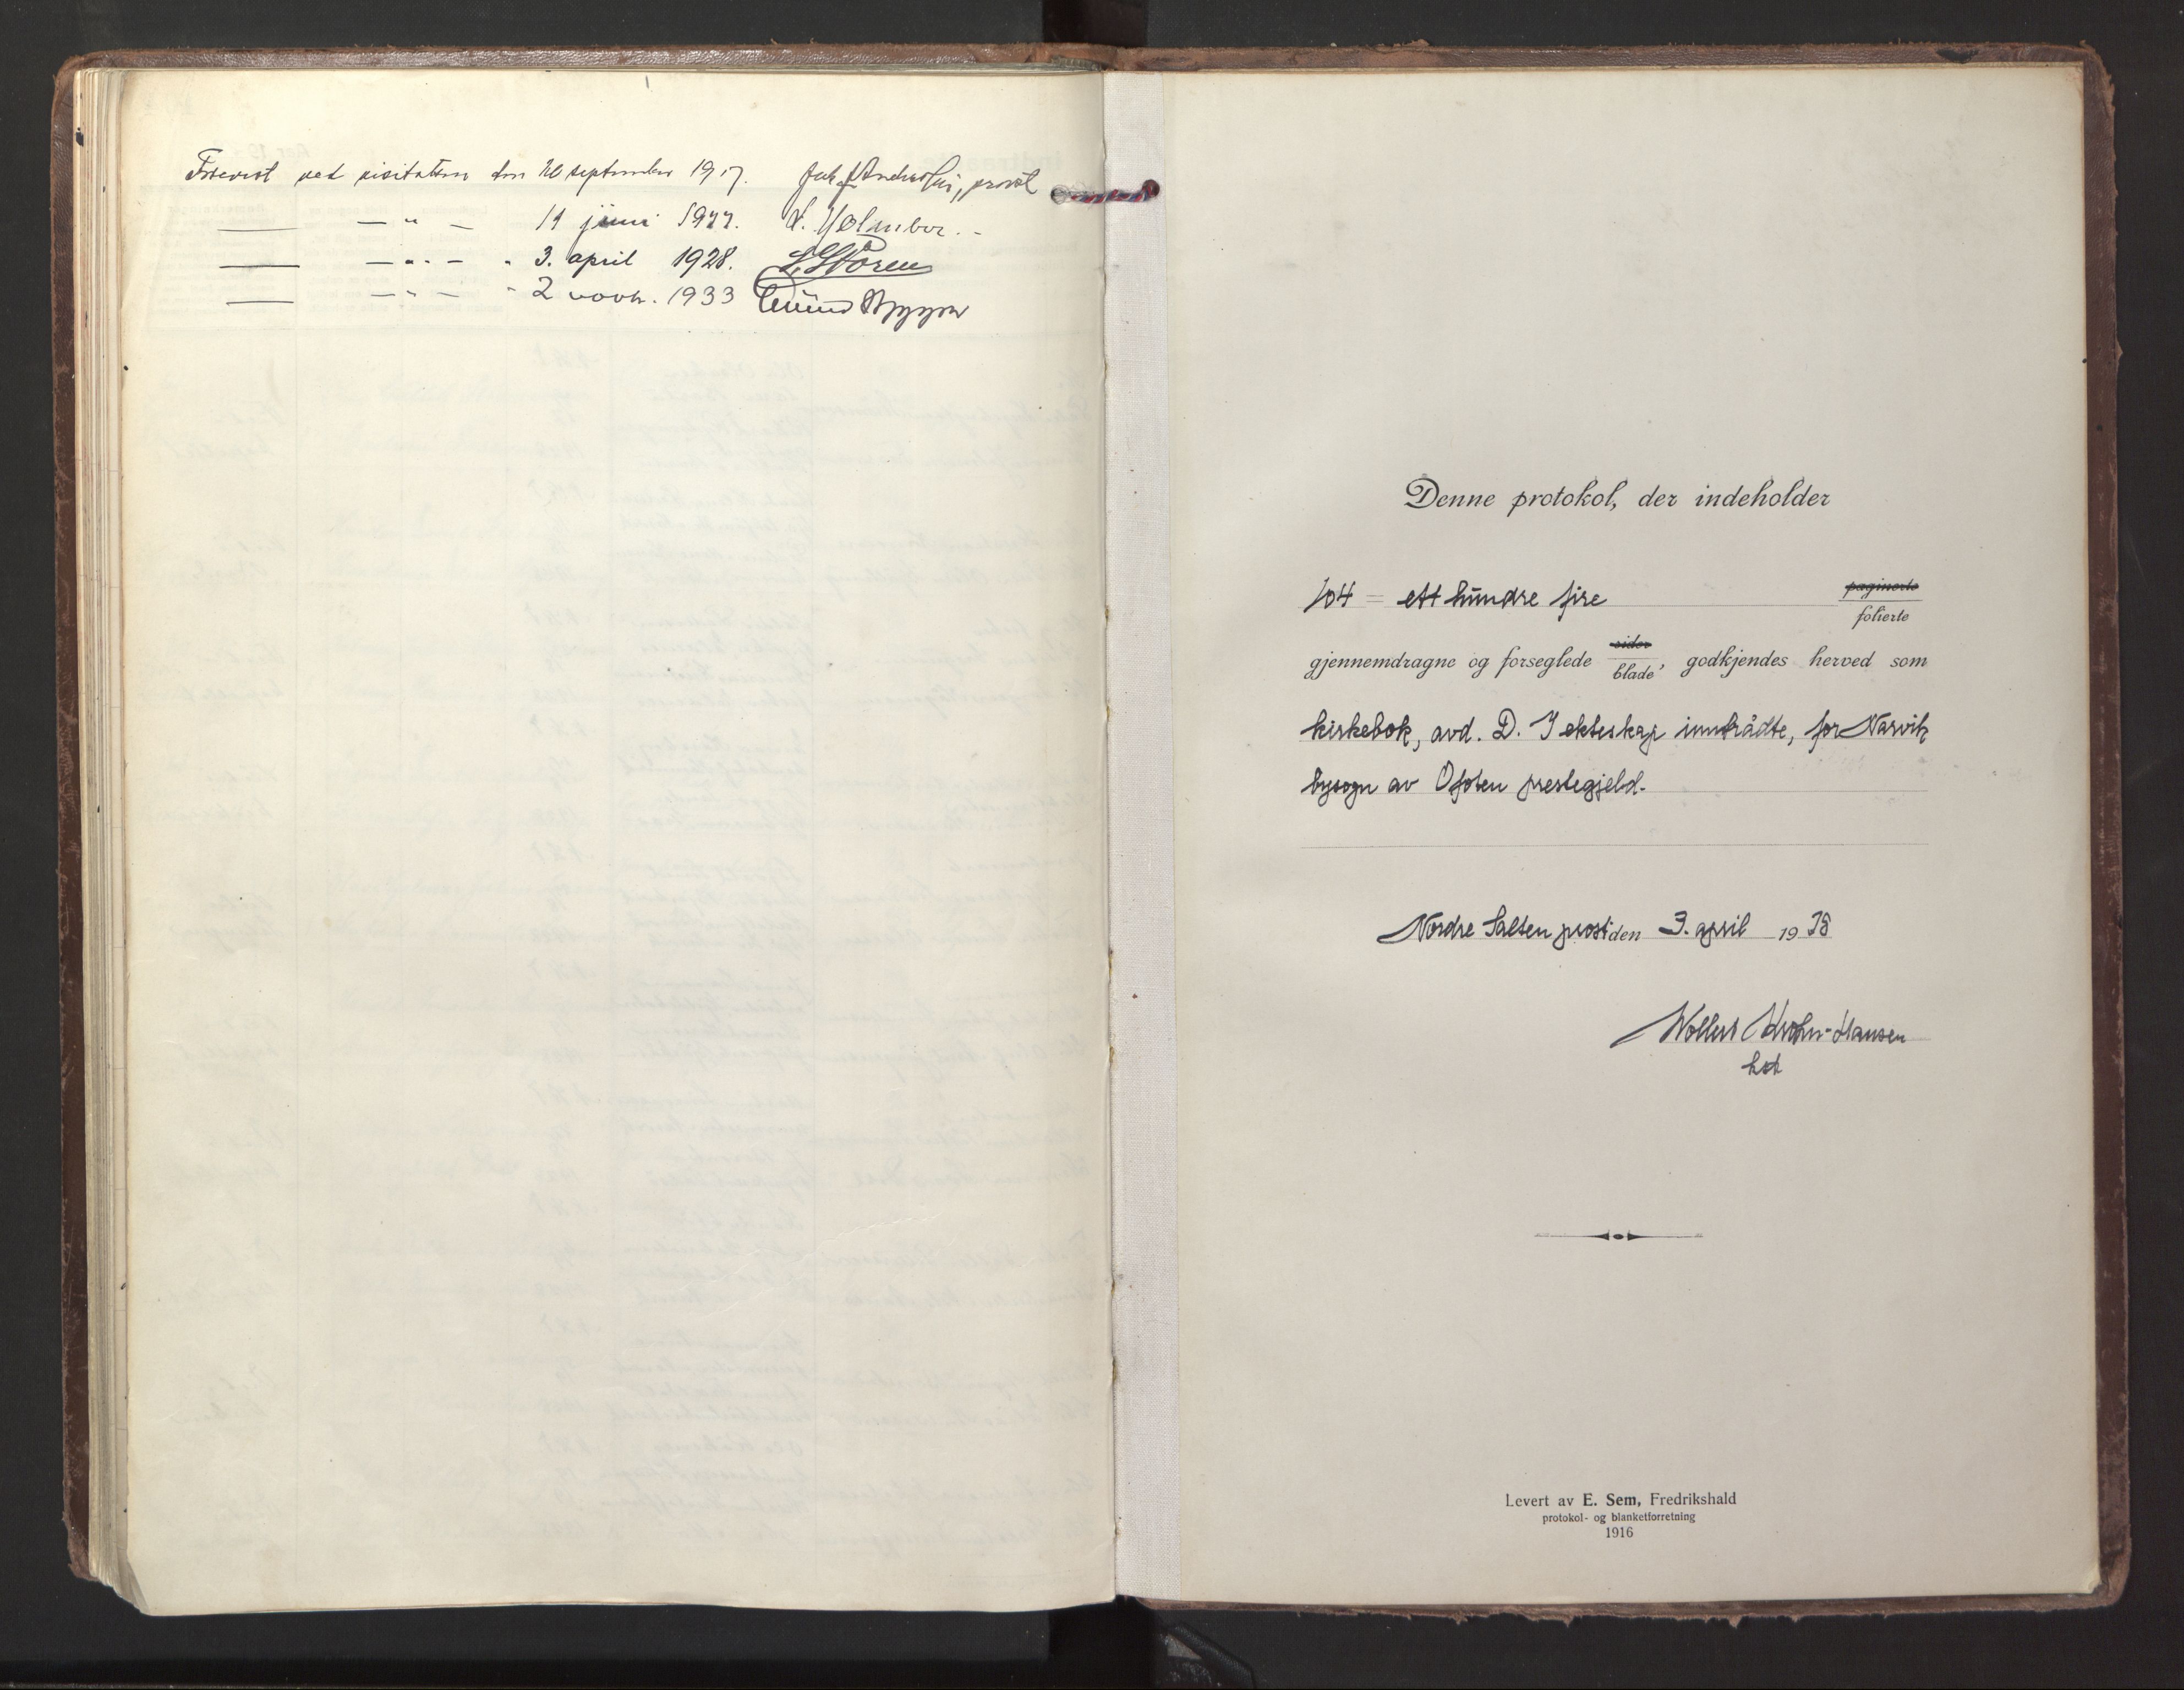 Forevist ved visitatsen den 20 september 1917. Jak. Anderssen, provst
— — " — 11 juni 1922. V. Hølmboe.
— — " — " 3. april 1928. S. Støren
— — " — " 2 novbr. 1933 Eivind Berggrav
Denne protokol, der indeholder
104 = ett hundre fire paginerte
folierte
gjennemdragne og forseglede sider
blade, godkjendes herved som
kirkebok, avd. D. I ekteskap inntrådte, for Narvik
bysogn av Ofoten prestegjeld.
Nordre Salten prosti den 3. april 1938
Wollert Krohn-Hansen
kst
Levert av E. Sem, Fredrikshald
protokol- og blanketforretning
1916